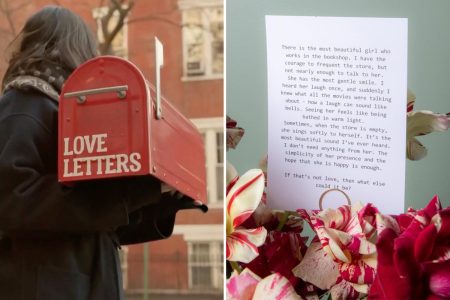 LOVE
LETTERS
There is the most beautiful girl who
works in the bookshop. I have the
courage to frequent the store, but
not nearly enough to talk to her.
She has the most gentle smile. I
heard her laugh once, and suddenly I
knew what all the movies were talking
about - how a laugh can sound like
bells. Seeing her feels like being
bathed in warm light.
Sometimes, when the store is empty,
she sings softly to herself. It's the
most beautiful sound I've ever heard.
I don't need anything from her. The
simplicity of her presence and the
hope that she is happy is enough.
If that's not love, then what else
could it be?